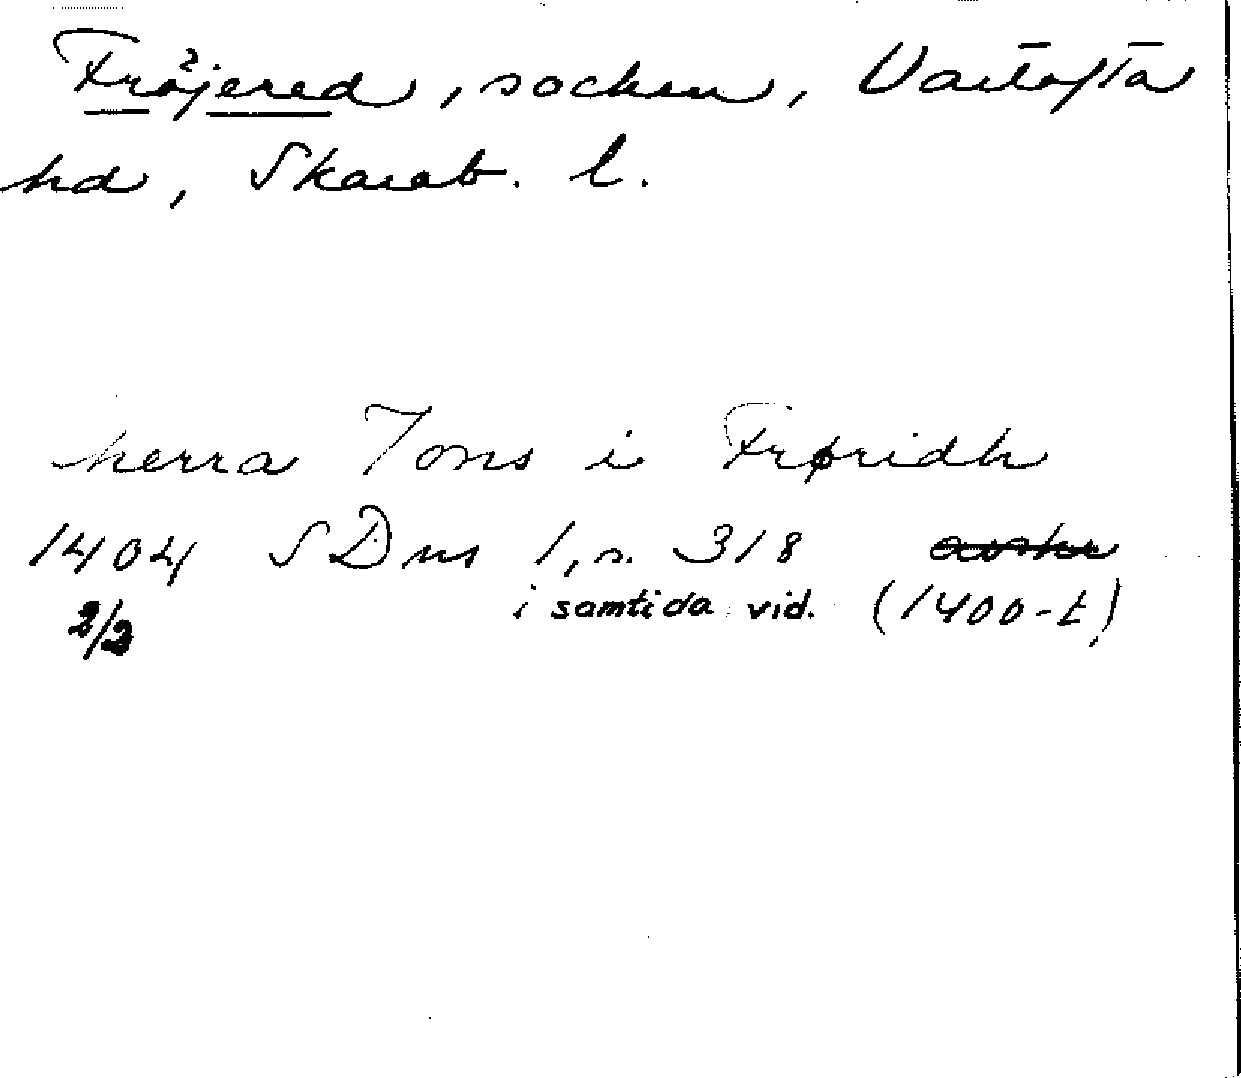 Fröjered, socken, Vartofta
hd, Skarab. l.
herra Jons i Frøridh
1404 SDns 1, s. 318
2/2 i samtida vid. (1400-t)